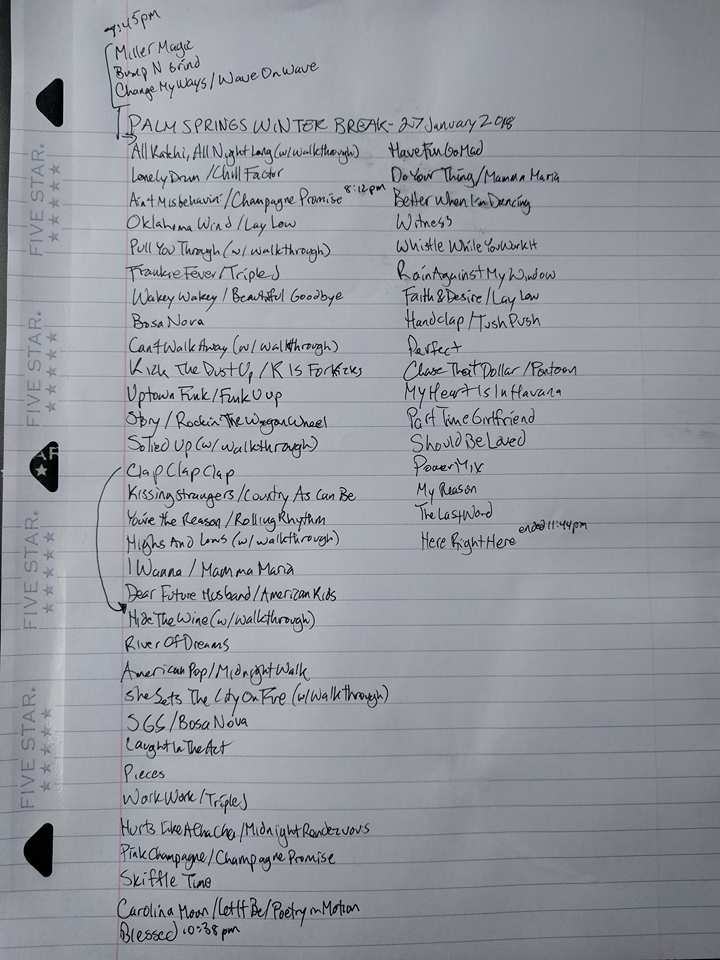 7:45pm
Miller Magic
Bump N Grind
Change My Ways / Wave On Wave
PALM SPRINGS WINTER BREAK - 27 January 2018
All Katchi, All Night Long (w/ walkthrough)
Lonely Drum / Chill Factor
Ain't Misbehavin' / Champagne Promise 8:12pm
Oklahoma Wind / Lay Low
Pull You Through (w/ walkthrough)
Frankie Fever / Triple J
Wakey Wakey / Beautiful Goodbye
Bosa Nova
Can't Walk Away (w/ walkthrough)
Kick The Dust Up / K Is For Kicks
Uptown Funk / Funk U up
Story / Rockin' The Wagon Wheel
So Tied Up (w/ walkthrough)
Clap Clap Clap
Kissing Strangers / Country As Can Be
You're the Reason / Rolling Rhythm
Highs And Lows (w/ walkthrough)
I Wanna / Mamma Maria
Dear Future Husband / American Kids
Hide The Wine (w/ walkthrough)
River Of Dreams
American Pop / Midnight Walk
She Sets The City On Fire (w/ walkthrough)
SGS / Bosa Nova
Caught In The Act
Pieces
Work Work / Triple J
Hurts Like A Cha Cha / Midnight Rendezvous
Pink Champagne / Champagne Promise
Skiffle Time
Carolina Moon / Let It Be / Poetry in Motion
Blessed 10:38pm
Have Fun Go Mad
Do Your Thing / Mamma Maria
Better When I'm Dancing
Witness
Whistle While You Work It
Rain Against My Window
Faith & Desire / Lay Low
Handclap / Tush Push
Perfect
Chase That Dollar / Pontoon
My Heart Is In Havana
Part Time Girlfriend
Should Be Loved
Power Mix
My Reason
The Last Word
Here Right Here ended 11:44pm
FIVE STAR.
FIVE STAR.
FIVE STAR.
FIVE STAR.